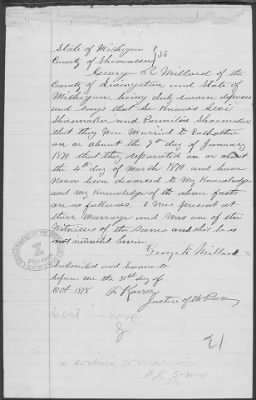 State of Michigan
County of Shiawassee } SS
George K Millard of the
County of Livingston and State of
Michigan, being duly sworn deposes
and says that he knows Levi
Shoemaker and Permilia Shoemaker
that they were Married to Eachother
on or about the 7th day of January
1870 that they separated on or about
the 4th day of March 1870 and have
Never been divorced to My Knowledge
and my Knowledge of the above facts
are as follows. I was present at
their Marriage and was one of the
Witnesses of the Same and that he is
not interested herein
George K Millard
Subscribed and Sworn to
before me the 31st day of
Oct 1898
Justice of the Peace
21